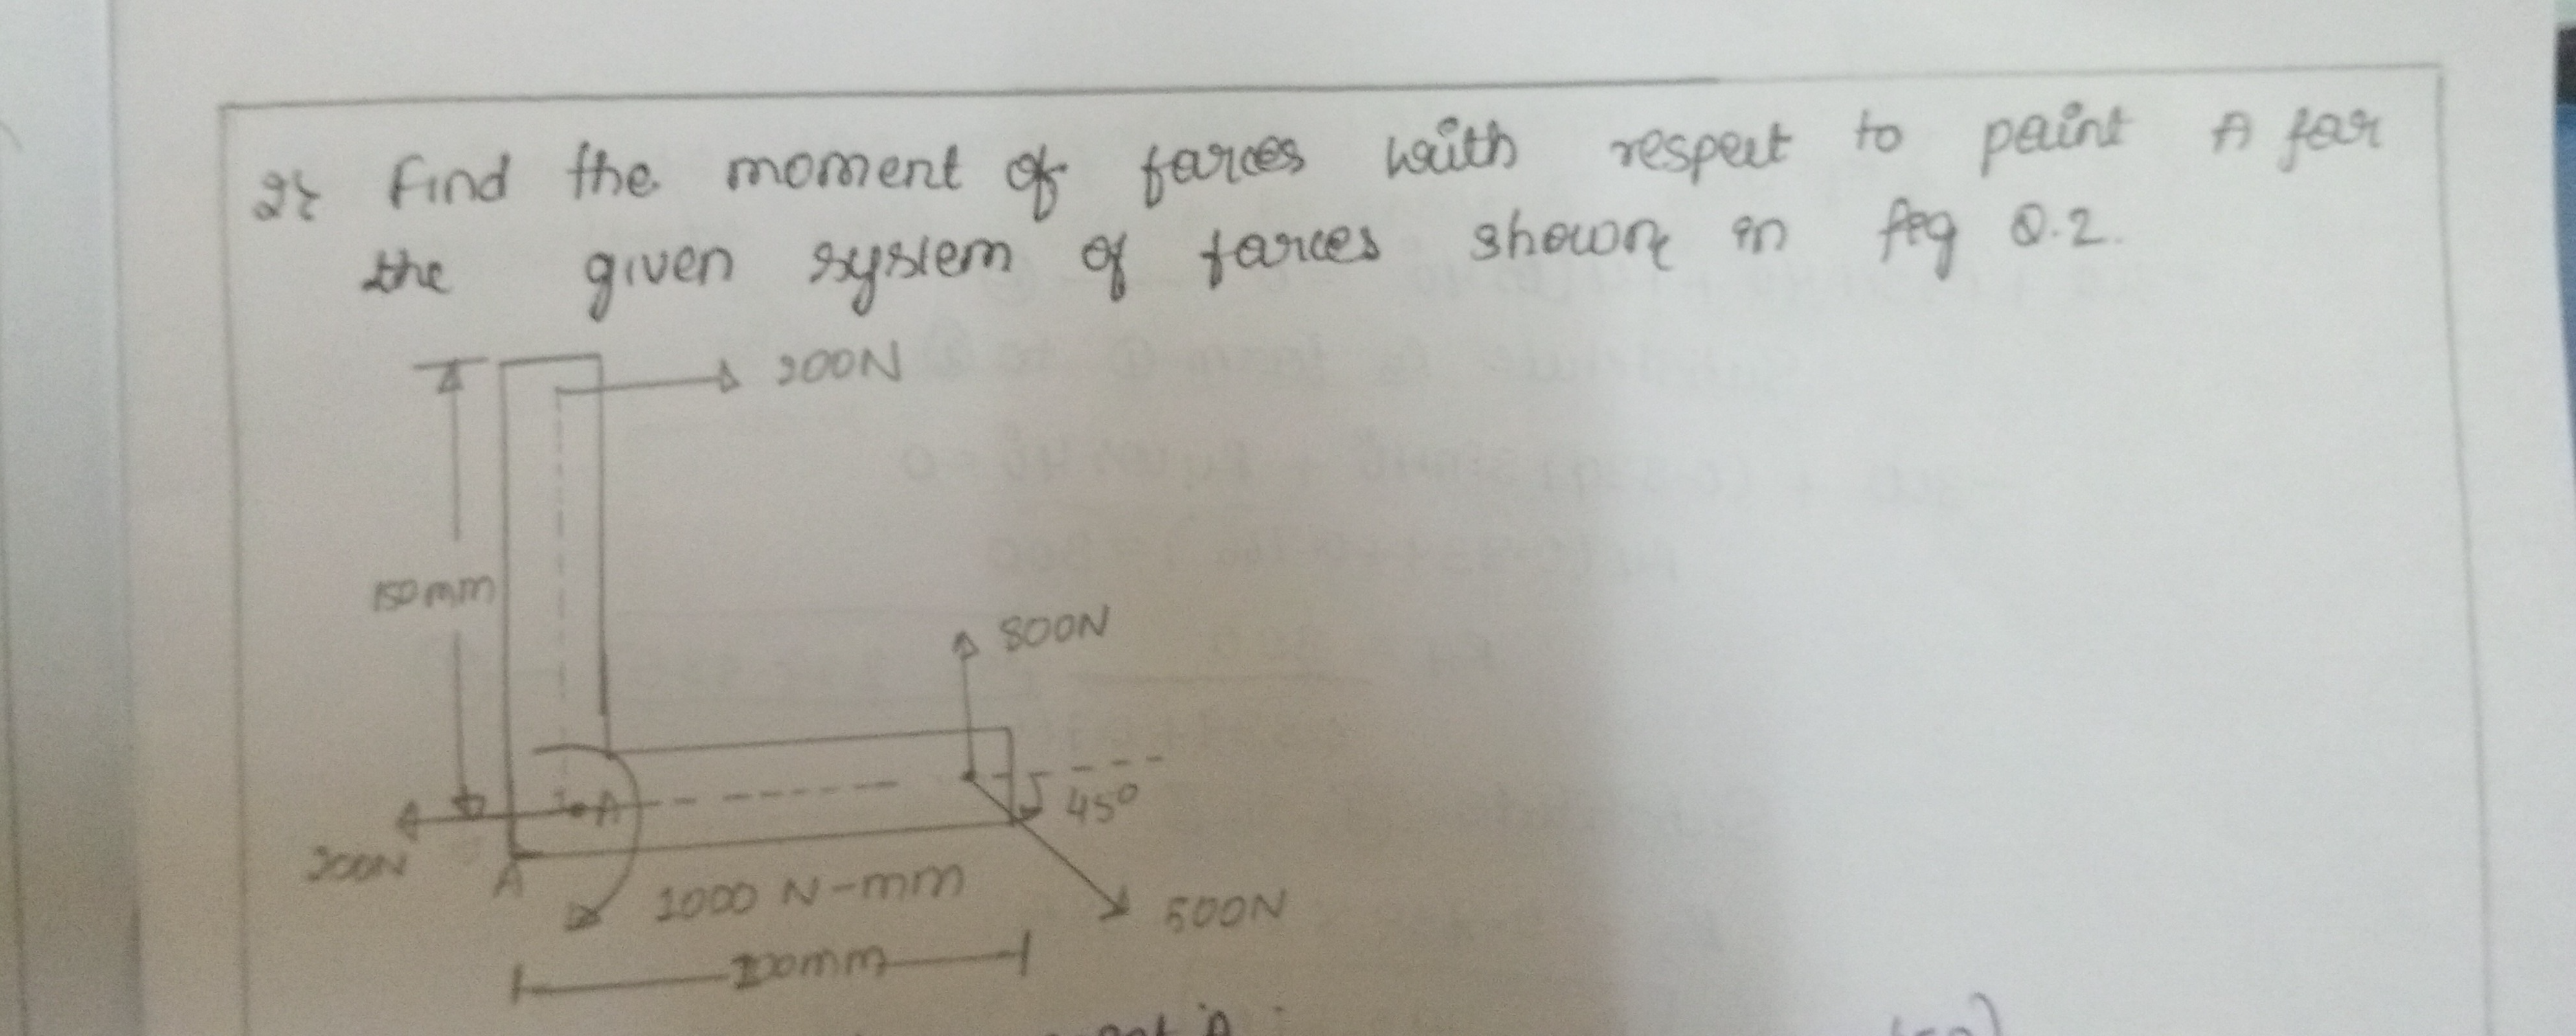 2. Find the moment of forces with respect to point A for
the given system of forces shown in fig Q.2.
200N
150mm
800N
45°
A
200N
A
1000 N-mm
500N
200mm